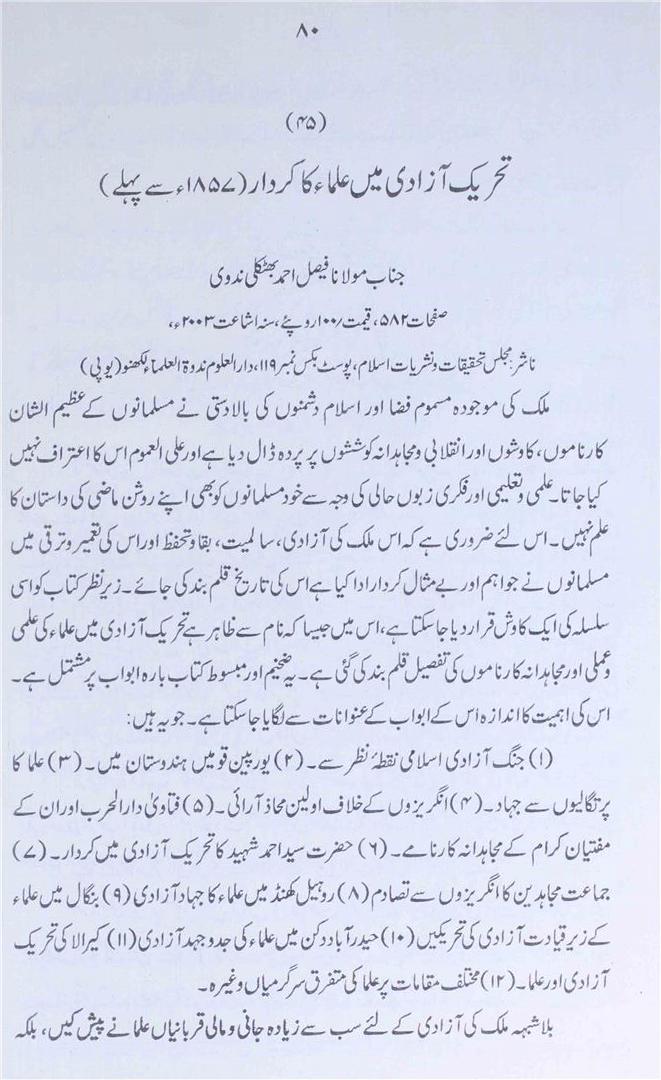 ۸۰
(۴۵)
تحریک آزادی میں علماء کا کردار (۱۸۵۷ء سے پہلے)
جناب مولانا فیصل احمد بھٹکلی ندوی
صفحات ۵۸۲، قیمت ۱۰۰/روپئے، سنہ اشاعت ۲۰۰۳ء،
ناشر: مجلس تحقیقات و نشریات اسلام، پوسٹ بکس نمبر ۱۱۹، دارالعلوم ندوۃ العلماء لکھنو (یوپی)
ملک کی موجودہ مسموم فضا اور اسلام دشمنوں کی بالادستی نے مسلمانوں کے عظیم الشان
کارناموں، کاوشوں اور انقلابی و مجاہدانہ کوششوں پر پردہ ڈال دیا ہے اور علی العموم اس کا اعتراف نہیں
کیا جاتا۔ علمی و تعلیمی اور فکری زبوں حالی کی وجہ سے خود مسلمانوں کو بھی اپنے روشن ماضی کی داستان کا
علم نہیں۔ اس لئے ضروری ہے کہ اس ملک کی آزادی، سالمیت، بقا و تحفظ اور اس کی تعمیر و ترقی میں
مسلمانوں نے جو اہم اور بے مثال کردار ادا کیا ہے اس کی تاریخ قلم بند کی جائے۔ زیر نظر کتاب کو اسی
سلسلہ کی ایک کاوش قرار دیا جا سکتا ہے، اس میں جیسا کہ نام سے ظاہر ہے تحریک آزادی میں علماء کی علمی
و عملی اور مجاہدانہ کارناموں کی تفصیل قلم بند کی گئی ہے۔ یہ ضخیم اور مبسوط کتاب بارہ ابواب پر مشتمل ہے۔
اس کی اہمیت کا اندازہ اس کے ابواب کے عنوانات سے لگایا جا سکتا ہے۔ جو یہ ہیں:
(۱) جنگ آزادی اسلامی نقطۂ نظر سے۔ (۲) یورپین قومیں ہندوستان میں۔ (۳) علما کا
پرتگالیوں سے جہاد۔ (۴) انگریزوں کے خلاف اولین محاذ آرائی۔ (۵) فتاویٰ دارالحرب اور ان کے
مفتیان کرام کے مجاہدانہ کارنامے۔ (۶) حضرت سید احمد شہید کا تحریک آزادی میں کردار۔ (۷)
جماعت مجاہدین کا انگریزوں سے تصادم (۸) روہیل کھنڈ میں علماء کا جہاد آزادی (۹) بنگال میں علماء
کے زیر قیادت آزادی کی تحریکیں (۱۰) حیدرآباد دکن میں علماء کی جدوجہد آزادی (۱۱) کیرالا کی تحریک
آزادی اور علما۔ (۱۲) مختلف مقامات پر علما کی متفرق سرگرمیاں وغیرہ۔
بلا شبہہ ملک کی آزادی کے لئے سب سے زیادہ جانی و مالی قربانیاں علما نے پیش کیں، بلکہ